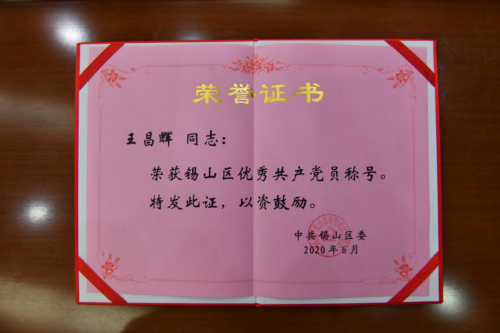 荣誉证书
王昌辉 同志：
荣获锡山区优秀共产党员称号。
特发此证，以资鼓励。
中共锡山区委
2020年6月